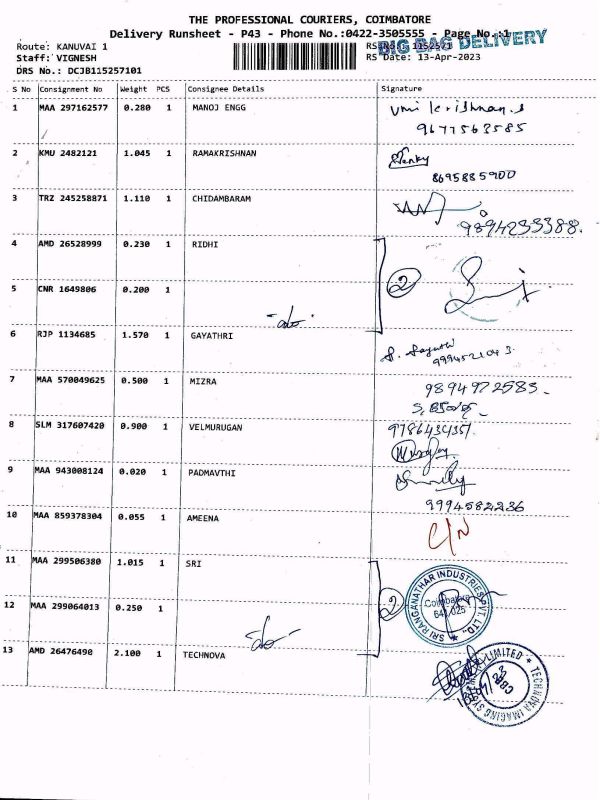 THE PROFESSIONAL COURIERS, COIMBATORE
Delivery Runsheet - P43 - Phone No.:0422-3505555 - Page No.:1
BIG BAG DELIVERY
Route: KANUVAI 1
Staff: VIGNESH
RS Date: 13-Apr-2023
DRS No.: DCJB115257101
S No Consignment No Weight PCS Consignee Details Signature
1 MAA 297162577 0.280 1 MANOJ ENGG
9677563585
2 KMU 2482121 1.045 1 RAMAKRISHNAN
8695885900
3 TRZ 245258871 1.110 1 CHIDAMBARAM
9894233388.
4 AMD 26528999 0.230 1 RIDHI
2
5 CNR 1649806 0.200 1
-do-
6 RJP 1134685 1.570 1 GAYATHRI
7 MAA 570049625 0.500 1 MIZRA
9894972583
8 SLM 317607420 0.900 1 VELMURUGAN
9 MAA 943008124 0.020 1 PADMAVTHI
9994582236
10 MAA 859378304 0.055 1 AMEENA
C/N
11 MAA 299506380 1.015 1 SRI
2
SRI RANGANATHAR INDUSTRIES PVT. LTD.,
Coimbatore
641 025
12 MAA 299064013 0.250 1
-do-
13 AMD 26476490 2.100 1 TECHNOVA